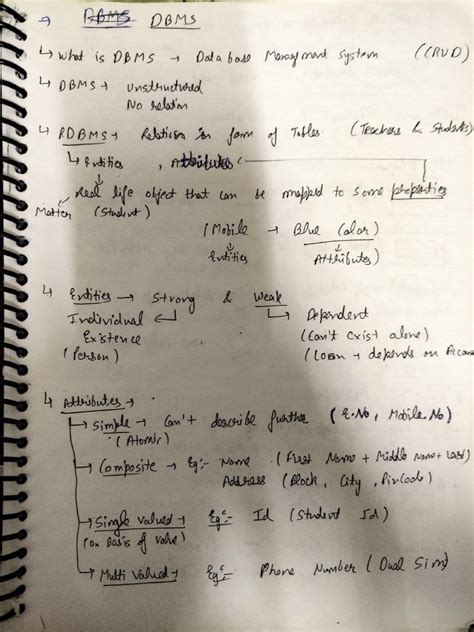 → DBMS DBMS
↳ What is DBMS → Data base Management System (CRUD)
↳ DBMS → Unstructured
No relation
↳ RDBMS → Relation in form of Tables. (Teachers & Students)
↳ Entities , Attributes
Real life object that can be mapped to some properties
Matter (Student)
(Mobile → Blue Color)
Entities Attributes)
↳ Entities → Strong & Weak
Individual Existence → Dependent
(Person) (Can't exist alone)
(Loan → depends on
↳ Attributes →
→ Simple → Can't describe further (E.No, Mobile No)
(Atomic)
→ Composite → Eg:- Name (First Name + Middle Name + Last)
Address (Block, City, PinCode)
→ Single valued → Eg:- Id (Student Id)
(on Basis of value)
→ Multi Valued → Eg:- Phone Number (Dual Sim)